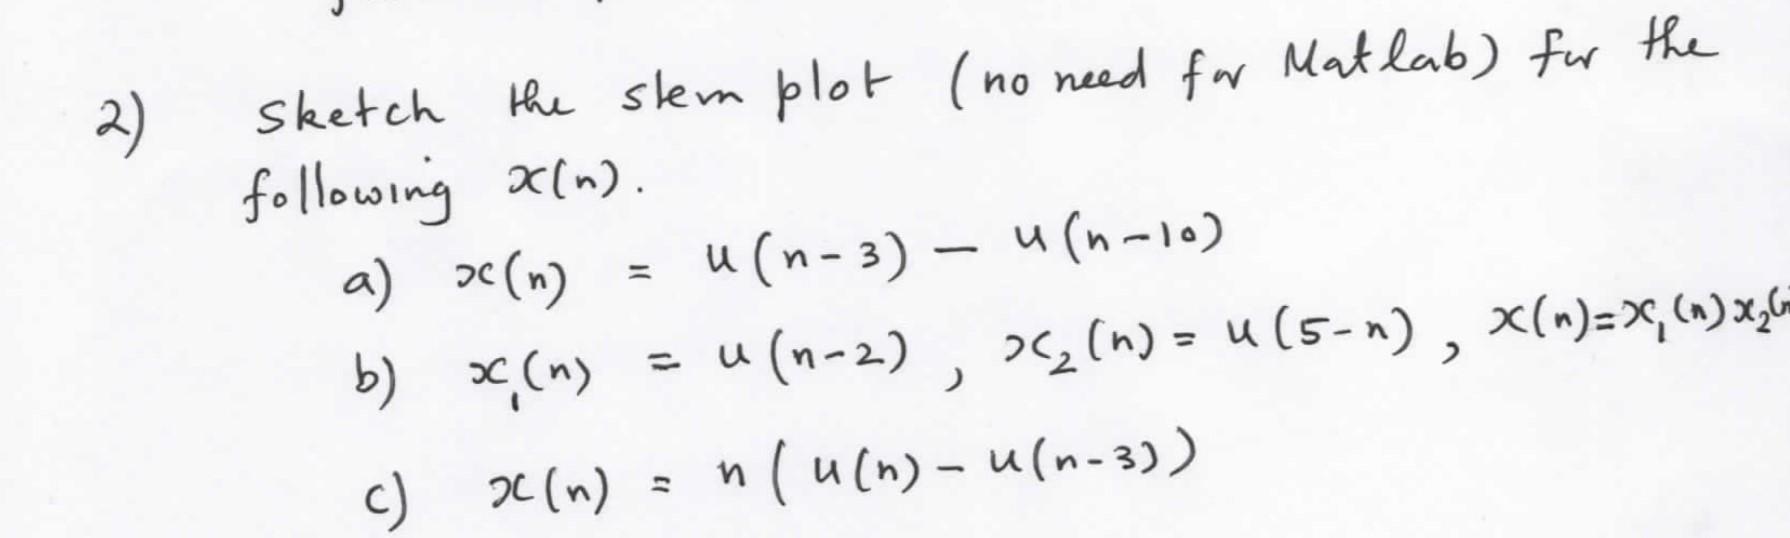 2) Sketch the stem plot (no need for Matlab) for the
following x(n).
a) x(n) = u(n-3) - u(n-10)
b) x₁(n) = u(n-2), x₂(n) = u(5-n), x(n)=x₁(n)x₂(n
c) x(n) = n(u(n)-u(n-3))